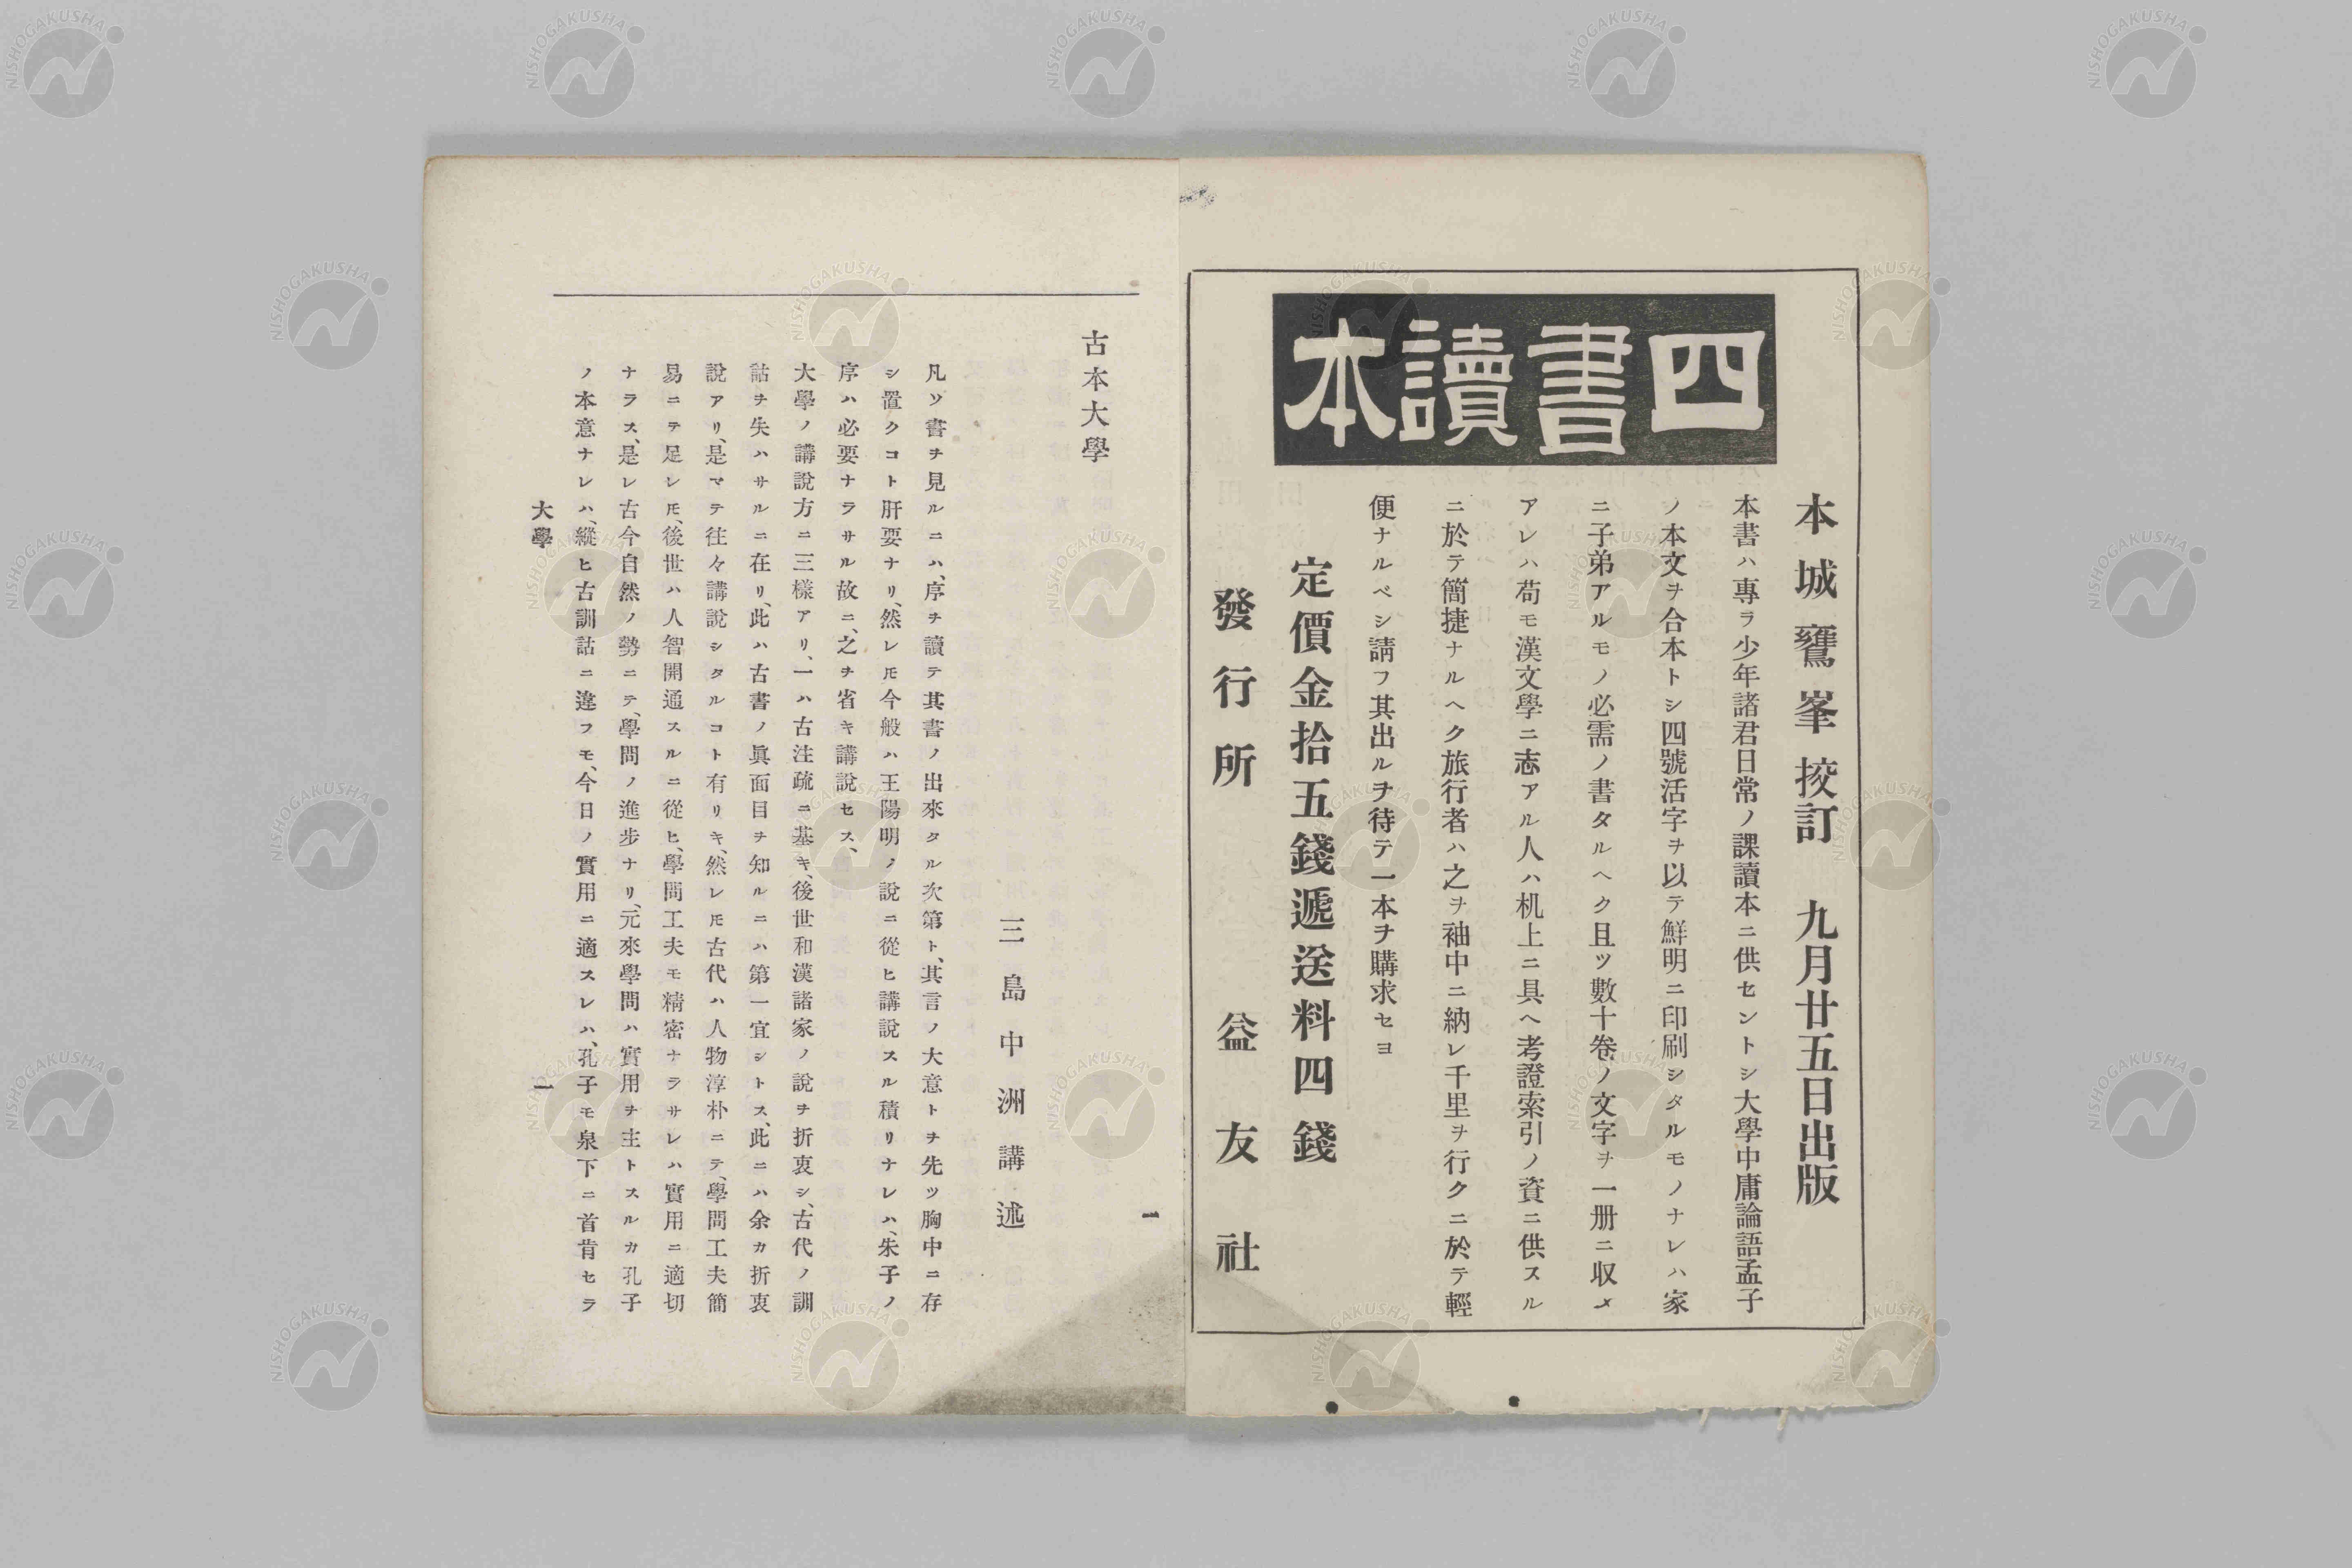 四書讀本
本城䳽峯挍訂 九月廿五日出版
本書ハ專ラ少年諸君日常ノ課讀本ニ供セントシ大學中庸論語孟子
ノ本文ヲ合本トシ四號活字ヲ以テ鮮明ニ印刷シタルモノナレハ家
ニ子弟アルモノノ必需ノ書タルヘク且ツ數十卷ノ文字ヲ一册ニ収メ
アレハ苟モ漢文學ニ志アル人ハ机上ニ具ヘ考證索引ノ資ニ供スル
ニ於テ簡捷ナルヘク旅行者ハ之ヲ袖中ニ納レ千里ヲ行クニ於テ輕
便ナルベシ請フ其出ルヲ待テ一本ヲ購求セヨ
定價金拾五錢遞送料四錢
發行所 益友社
一
古本大學
三島中洲講述
凡ソ書ヲ見ルニハ、序ヲ讀テ其書ノ出來タル次第ト、其言ノ大意トヲ先ツ胸中ニ存
シ置クコト肝要ナリ、然レ𪜈今般ハ王陽明ノ說ニ從ヒ講說スル積リナレハ、朱子ノ
序ハ必要ナラサル故ニ、之ヲ省キ講說セス、
大學ノ講說方ニ三樣アリ、一ハ古注疏ニ基キ、後世和漢諸家ノ說ヲ折衷シ、古代ノ訓
詁ヲ失ハサルニ在リ、此ハ古書ノ眞面目ヲ知ルニハ第一宜シトス、此ニハ余カ折衷
說アリ、是マテ往々講說シタルコト有リキ、然レ𪜈古代ハ人物淳朴ニテ、學問工夫簡
易ニテ足レ𪜈、後世ハ人智開通スルニ從ヒ、學問工夫モ精密ナラサレハ實用ニ適切
ナラス、是レ古今自然ノ勢ニテ、學問ノ進步ナリ、元來學問ハ實用ヲ主トスルカ孔子
ノ本意ナレハ、縱ヒ古訓詁ニ違フモ、今日ノ實用ニ適スレハ、孔子モ泉下ニ首肯セラ
大學 一
NISHOGAKUSHA